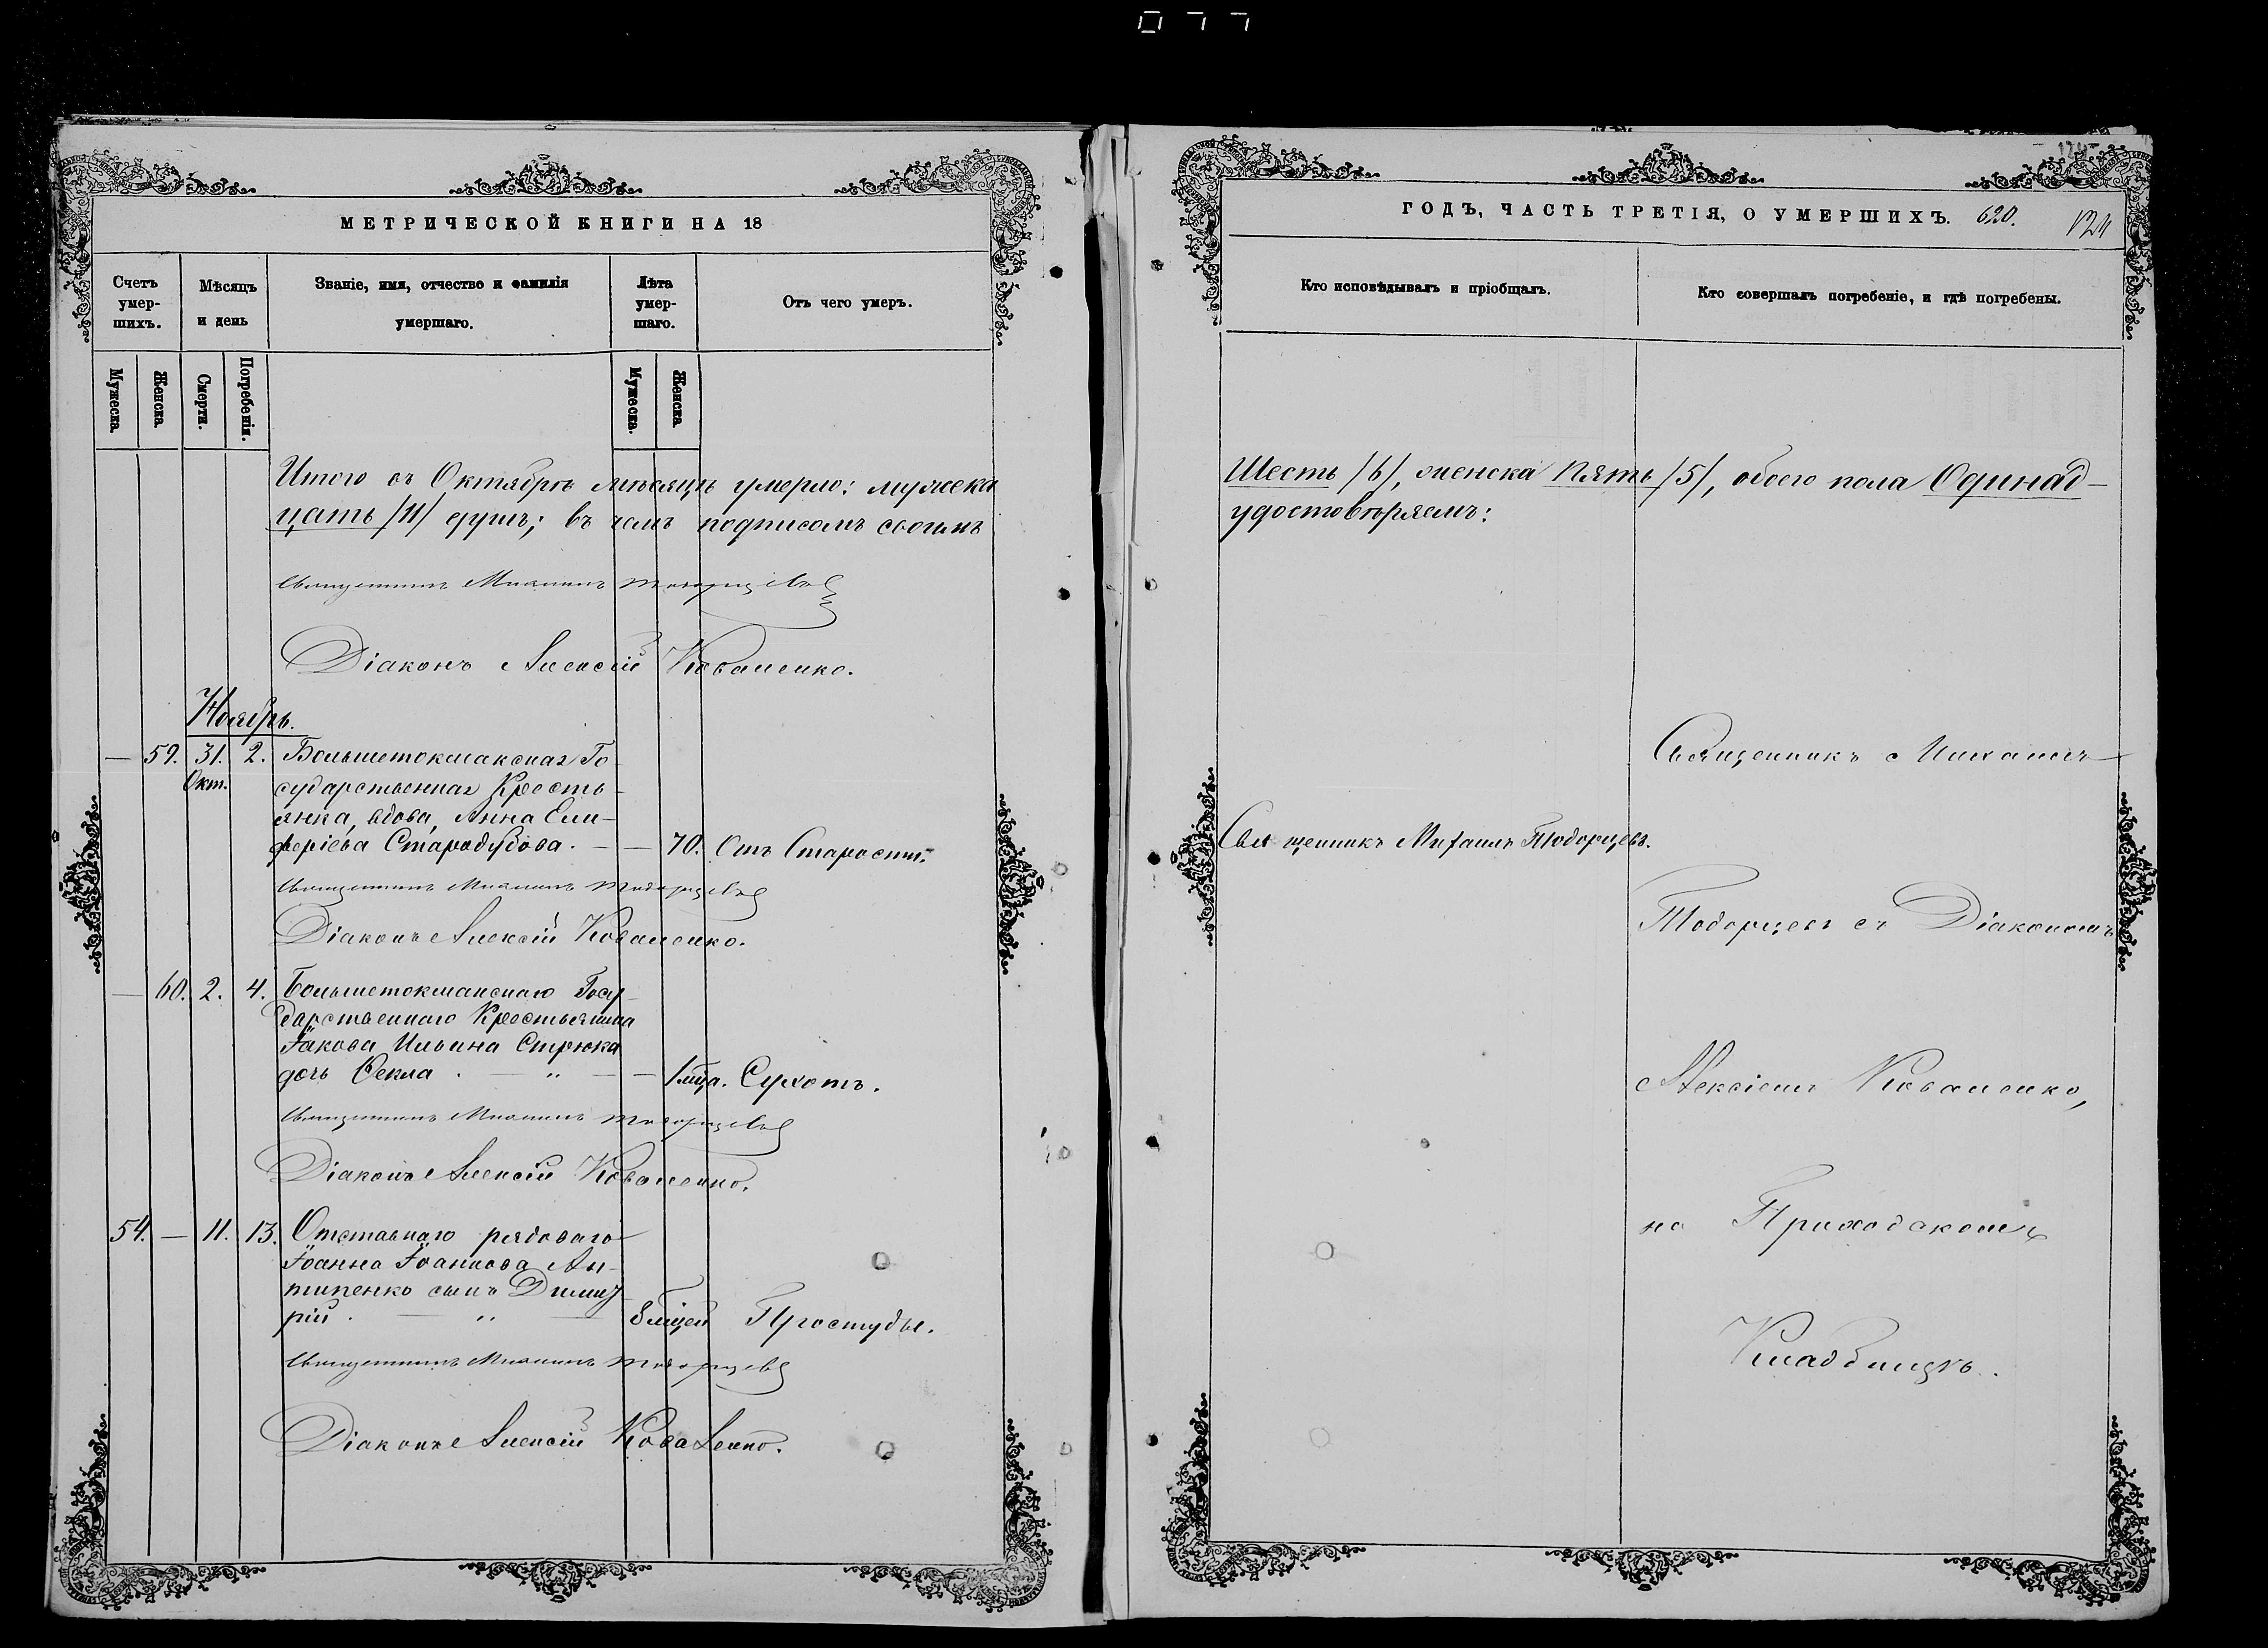 077
МЕТРИЧЕСКОЙ КНИГИ НА 18
Счетъ умер- шихъ.
Мѣсяцъ и день
Званіе, имя, отчество и фамилія умершаго.
Лѣта умер- шаго.
Отъ чего умеръ.
Мужеска.
Женска
Смерти.
Погребенія.
Мужеска.
Женска
Итого въ Октябрѣ мѣсяцѣ умерло: мужеска
цать /11/ душъ; въ чемъ подписомъ своимъ
Священникъ Михаилъ Тюдорцевъ
Діаконъ Алексій Коваленко.
Ноябрь.
— 59. 31. 2. Большетокмакская Го-
Окт. сударственная Кресть-
янка, вдова, Анна Ели-
феріева Стародубова. — — 70. Отъ Старости.
Священникъ Михаилъ Тюдорцевъ
Діаконъ Алексій Коваленко.
— 60. 2. 4. Большетокмакскаго Госу-
дарственнаго Крестьянина
Іакова Ильина Стрюка
дочь Ѳекла . — „ — — 1 мца. Сухотъ.
Священникъ Михаилъ Тюдорцевъ
Діаконъ Алексій Коваленко.
54. — 11. 13. Отставнаго рядоваго
Іоанна Іоаннова Ан-
типенко сынъ Димит-
рій . — „ — 8 мцей Простуды.
Священникъ Михаилъ Тюдорцевъ
Діаконъ Алексій Коваленко.
ГОДЪ, ЧАСТЬ ТРЕТІЯ, О УМЕРШИХЪ. 620.
Кто исповѣдывалъ и пріобщалъ.
Кто совершалъ погребеніе, и гдѣ погребены.
Шесть /6/, женска Пять /5/, обоего пола Одинад-
удостовѣряемъ:
Священникъ Михаилъ
Священникъ Михаилъ Тюдорцевъ.
Тюдорцевъ съ Діакономъ
Алексіемъ Коваленко,
на Приходскомъ
Кладбищѣ.